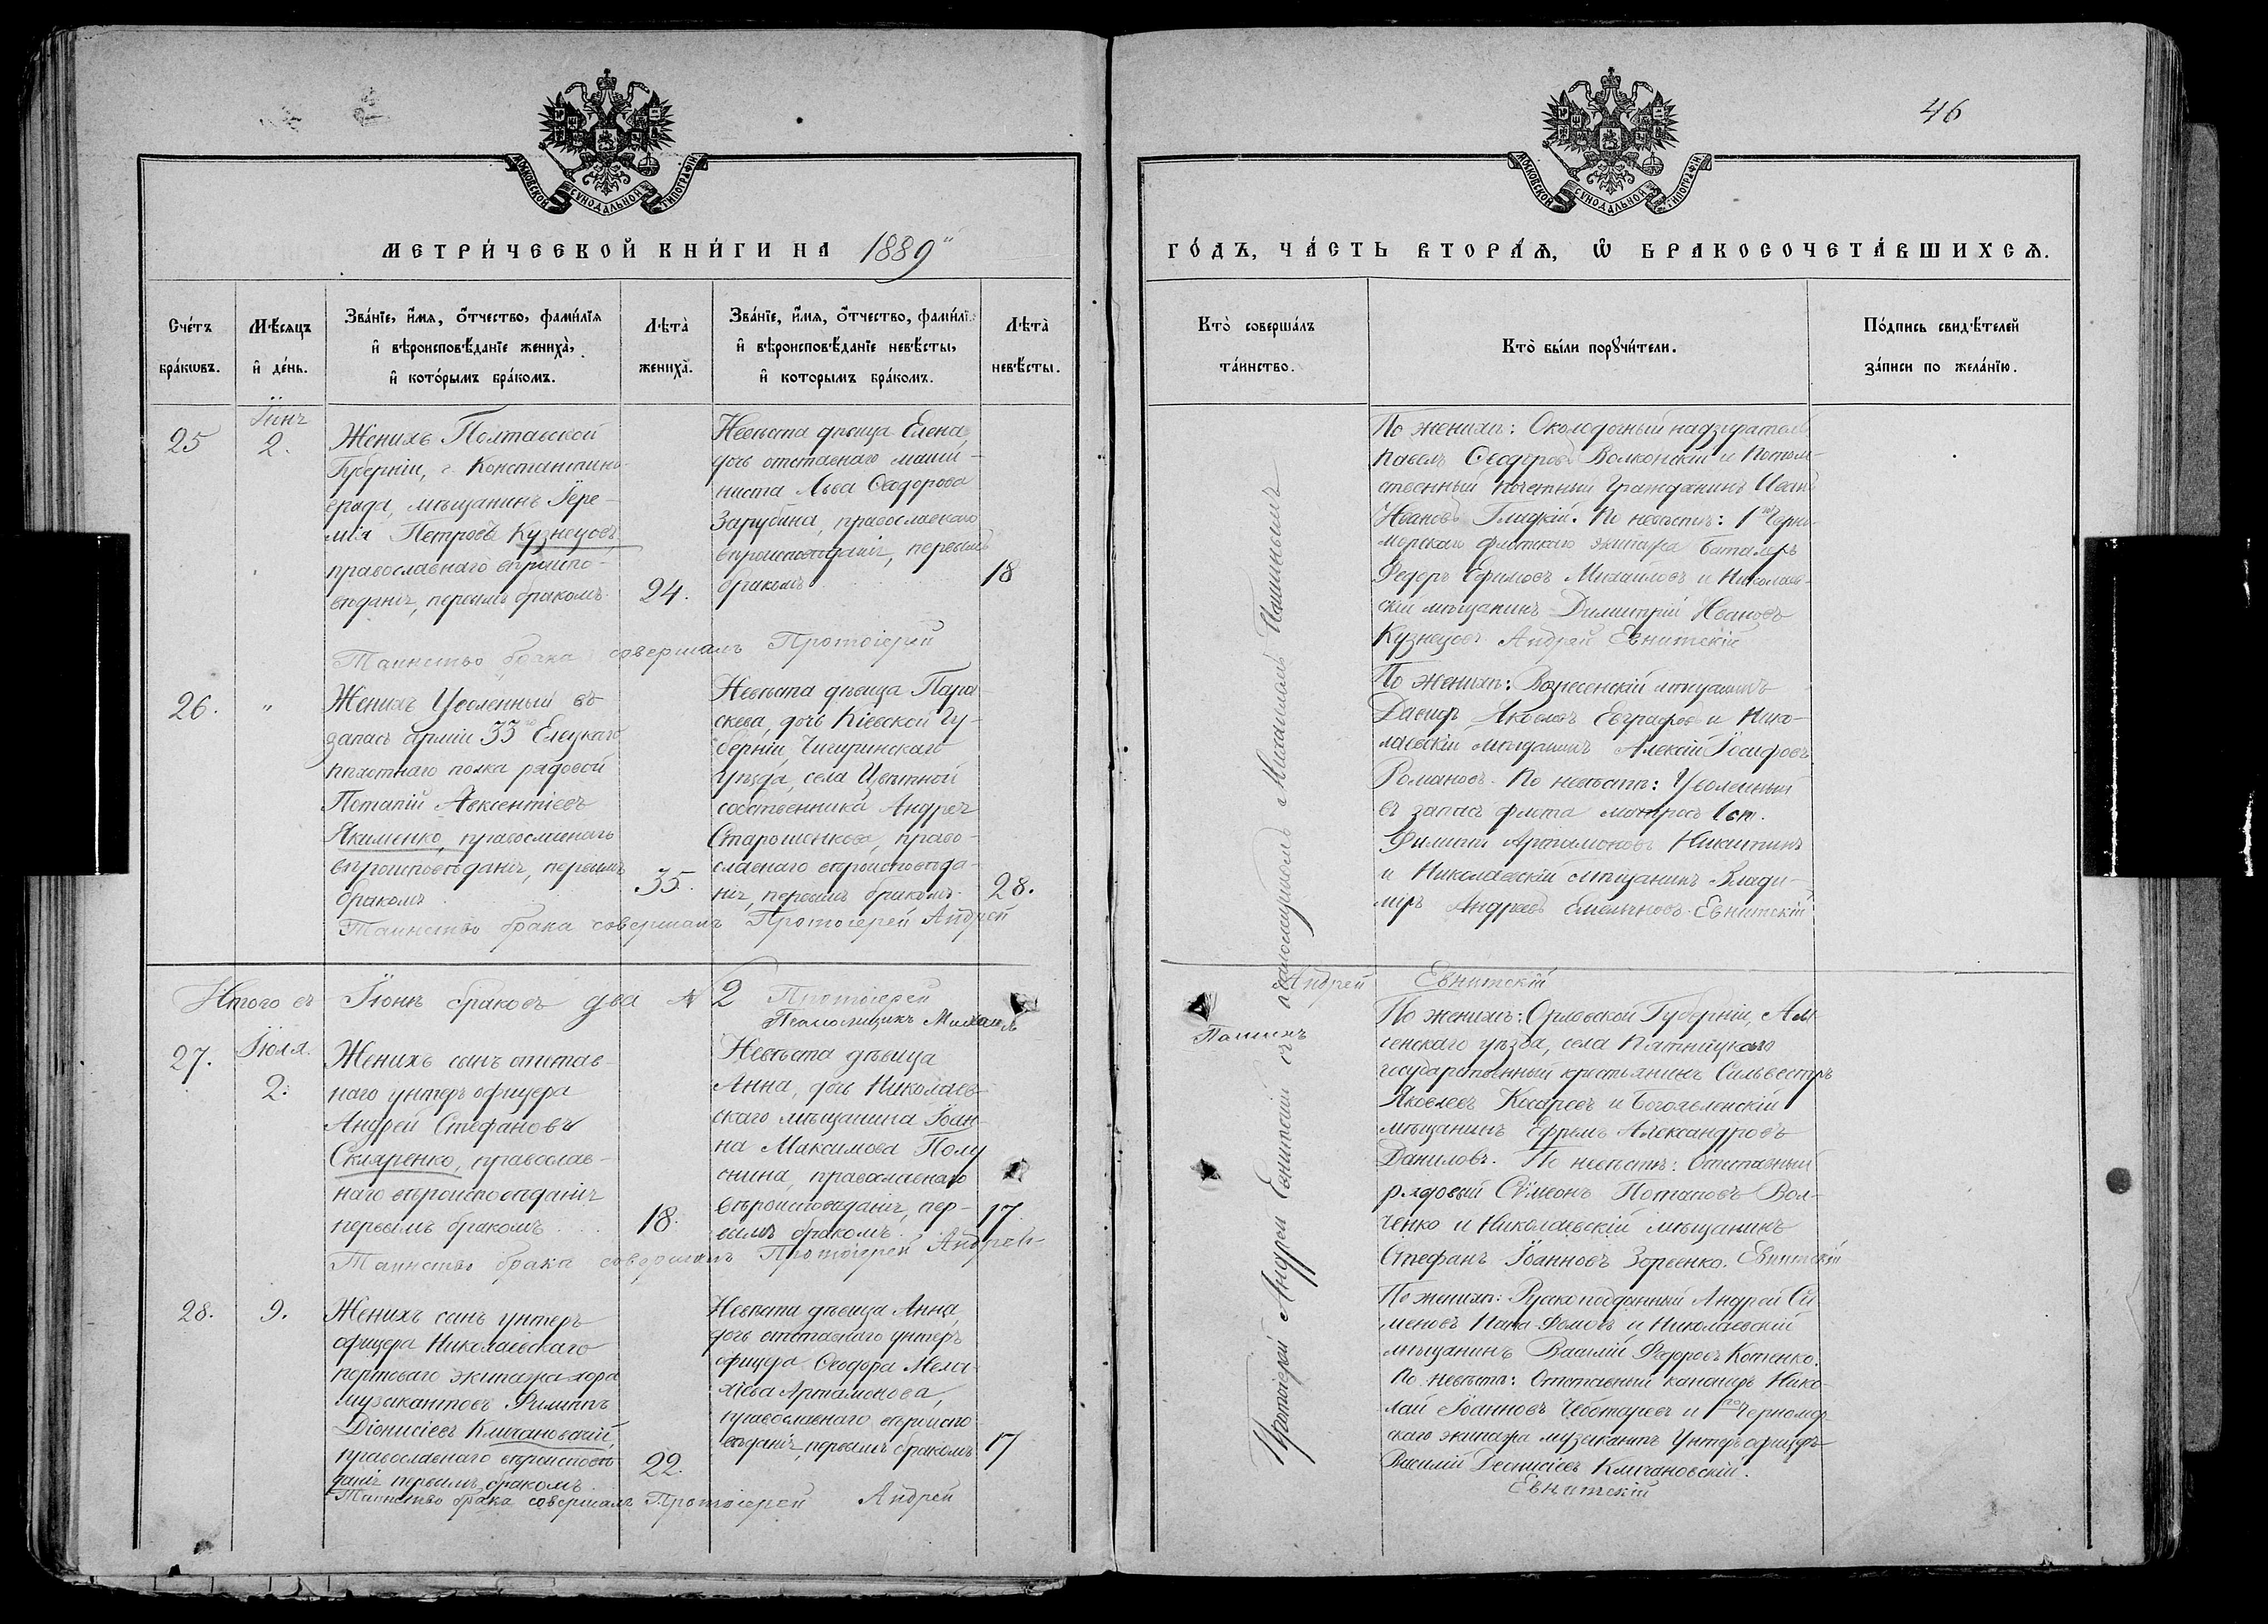 46
МОСКОВСКОЙ СѴНОДАЛЬНОЙ ТИПОГРАФІИ
МОСКОВСКОЙ СѴНОДАЛЬНОЙ ТИПОГРАФІИ
МЕТРИ́ЧЕСКОЙ КНИ́ГИ НА 1889
ГО́ДЪ, ЧА́СТЬ ВТОРА́Ѧ, Ѽ БРАКОСОЧЕТА́ВШИХСѦ.
Сче́тъ
бра́ковъ.
Мѣ́сяцъ
и де́нь.
Зва́нїе, и́мя, ѻ́тчество, фами́лїя
и вѣроисповѣ́данїе жениха̀,
и кото́рымъ бра́комъ.
Лѣта̀
жениха̀.
Зва́нїе, и́мя, ѻ́тчество, фами́лї
и вѣроисповѣ́данїе невѣ́сты,
и которымъ бра́комъ.
Лѣта̀
невѣ́сты.
Кто̀ соверша́лъ
та́инство.
Кто̀ бы́ли порꙋчи́тели.
По́дпись свидѣ́телей
за́писи по жела́нїю.
25
Іюнь
2.
Женихъ Полтавской
Губерніи, г. Константино-
града, мѣщанинъ Іере-
мія Петровъ Кузнецовъ,
православнаго вѣроиспо-
вѣданія, первымъ бракомъ.
24.
Невѣста дѣвица Елена,
дочь отставнаго маши-
ниста Льва Ѳеодорова
Зарубина, православнаго
вѣроисповѣданія, первымъ
бракомъ
18
По женихѣ: Околодочный надзиратель
Павелъ Ѳеодоровъ Волконскій и Потом-
ственный почетный гражданинъ Иванъ
Ивановъ Глидкій. По невѣстѣ: 1го Черно-
морскаго флотскаго экипажа баталеръ
Федоръ Ефимовъ Михайловъ и Николаев-
скій мѣщанинъ Димитрій Ивановъ
Кузнецовъ. Андрей Евнитскій
Таинство брака совершалъ Протоіерей
26.
"
Женихъ Уволенный въ
запасъ арміи 33го Елецкаго
пѣхотнаго полка рядовой
Потапій Авксентіевъ
Якименко, православнаго
вѣроисповѣданія, первымъ
бракомъ
35.
Невѣста дѣвица Пара-
скева, дочь Кіевской Гу-
берніи, Чигиринскаго
уѣзда, села Цвѣтной
собственника Андрея
Старошенкова, право-
славнаго вѣроисповѣда-
нія, первымъ бракомъ.
28.
По женихѣ: Вознесенскій мѣщанинъ
Давидъ Яковлевъ Евграфовъ и Нико-
лаевскій мѣщанинъ Алексій Іосифовъ
Романовъ. По невѣстѣ: Уволенный
въ запасъ флота матросъ 1 ст.
Филиппъ Артамоновъ Никитинъ
и Николаевскій мѣщанинъ Влади-
міръ Андреевъ Емельяновъ. Евнитскій
Таинство брака совершалъ Протоіерей Андрей
Итого въ Іюнѣ браковъ два № 2 Протоіерей Андрей Евнитскій
Псаломщикъ Михаилъ Пашинъ
Протоіерей Андрей Евнитскій съ псаломщикомъ Михаиломъ Пашинымъ
27.
Іюля.
2.
Женихъ сынъ отстав-
наго унтеръ офицера
Андрей Стефановъ
Скляренко, православ-
наго вѣроисповѣданія
первымъ бракомъ
18.
Невѣста дѣвица
Анна, дочь Николаев-
скаго мѣщанина Іоан-
на Максимова Полу
нина, православнаго
вѣроисповѣданія, пер-
вымъ бракомъ.
17.
По женихѣ: Орловской Губерніи, Мц-
сенскаго уѣзда, села Пятницкаго
государственный крестьянинъ Сильвестръ
Яковлевъ Косаревъ и Богоявленскій
мѣщанинъ Ефремъ Александровъ
Даниловъ. По невѣстѣ: Отставный
рядовый Сѵмеонъ Потаповъ Вол-
ченко и Николаевскій мѣщанинъ
Стефанъ Іоанновъ Зорвенко. Евнитскій
Таинство брака совершалъ Протоіерей Андрей
28.
9.
Женихъ сынъ унтеръ
офицера Николаевскаго
портоваго экипажа хора
музыкантовъ Филиппъ
Діонисіевъ Кличановскій,
православнаго вѣроисповѣ
данія первымъ бракомъ.
22.
Невѣста дѣвица Анна,
дочь отставнаго унтеръ
офицера Ѳеодора Мела
хіева Артамонова,
православнаго вѣроиспо
вѣданія, первымъ бракомъ
17
По женихѣ: Рускоподданный Андрей Си-
меновъ Папа-Ѳомовъ и Николаевскій
мѣщанинъ Василій Федоровъ Котенко.
По невѣстѣ: Отставный канониръ Нико-
лай Іоанновъ Чеботаревъ и 1го Черномор
скаго экипажа музыкантъ Унтеръ офицеръ
Василій Деонисіевъ Кличановскій.
Евнитскій
Таинство брака совершалъ Протоіерей Андрей